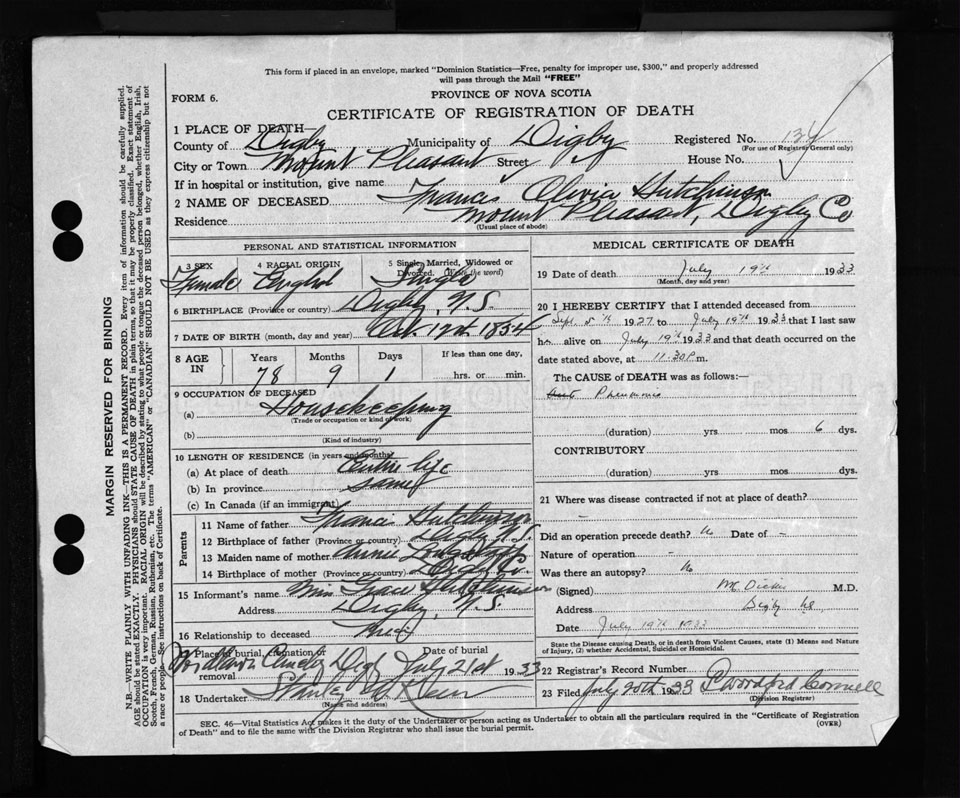 This form if placed in an envelope, marked "Dominion Statistics—Free, penalty for improper use, $300," and properly addressed
will pass through the Mail "FREE"
FORM 6.
PROVINCE OF NOVA SCOTIA
CERTIFICATE OF REGISTRATION OF DEATH
1 PLACE OF DEATH—
County of Digby Municipality of Digby Registered No. 134
(For use of Registrar General only)
City or Town Mount Pleasant Street House No.
If in hospital or institution, give name
2 NAME OF DECEASED Frances Olivia Hutchinson
Residence Mount Pleasant, Digby Co
(Usual place of abode)
PERSONAL AND STATISTICAL INFORMATION
3 SEX 4 RACIAL ORIGIN 5 Single, Married, Widowed or Divorced. (Write the word)
Female English Single
6 BIRTHPLACE (Province or country) Digby, N.S.
7 DATE OF BIRTH (month, day and year) Oct. 12th 1854
8 AGE IN Years Months Days If less than one day,
78 9 1 hrs. or min.
9 OCCUPATION OF DECEASED
(a) Housekeeping
(Trade or occupation or kind of work)
(b)
(Kind of industry)
10 LENGTH OF RESIDENCE (in years and months)
(a) At place of death Entire life
(b) In province same
(c) In Canada (if an immigrant)
Parents
11 Name of father Francis Hutchinson
12 Birthplace of father (Province or country) Digby N.S.
13 Maiden name of mother Annie
14 Birthplace of mother (Province or country) Digby Co.
15 Informant's name Grace Hutchinson
Address Digby, N.S.
16 Relationship to deceased
17 Place of burial, cremation or removal Date of burial
July 21st 1933
18 Undertaker Stanley
(Name and address)
MEDICAL CERTIFICATE OF DEATH
19 Date of death July 19th 1933
(Month, day and year)
20 I HEREBY CERTIFY that I attended deceased from
Sept. 5th 1927 to July 19th 1933 that I last saw
h alive on July 19th 1933 and that death occurred on the
date stated above, at 11.30 P.m.
The CAUSE of DEATH was as follows:—
Pneumonia
(duration) yrs mos 6 dys.
CONTRIBUTORY
(duration) yrs mos dys.
21 Where was disease contracted if not at place of death?
–
Did an operation precede death? No Date of –
Nature of operation –
Was there an autopsy? No
(Signed) M.D.
Address Digby NS
Date July 19th 1933
State the Disease causing Death, or in death from Violent Causes, state (1) Means and Nature of Injury, (2) whether Accidental, Suicidal or Homicidal.
22 Registrar's Record Number
23 Filed July 20th 1933
(Division Registrar)
SEC. 46—Vital Statistics Act makes it the duty of the Undertaker or person acting as Undertaker to obtain all the particulars required in the "Certificate of Registration
of Death" and to file the same with the Division Registrar who shall issue the burial permit.
(OVER)
MARGIN RESERVED FOR BINDING
N.B.—WRITE PLAINLY WITH UNFADING INK—THIS IS A PERMANENT RECORD. Every item of information should be carefully supplied.
AGE should be stated EXACTLY. PHYSICIANS should STATE CAUSE OF DEATH in plain terms, so that it may be properly classified. Exact statement of
OCCUPATION is very important. RACIAL ORIGIN will be described by stating to what people or tongue the deceased person belonged, whether English, Irish,
Scotch, French, German, Russian, Ruthenian, etc. The terms "AMERICAN" or "CANADIAN" SHOULD NOT BE USED as they express citizenship but not
a race or people. See instructions on back of Certificate.